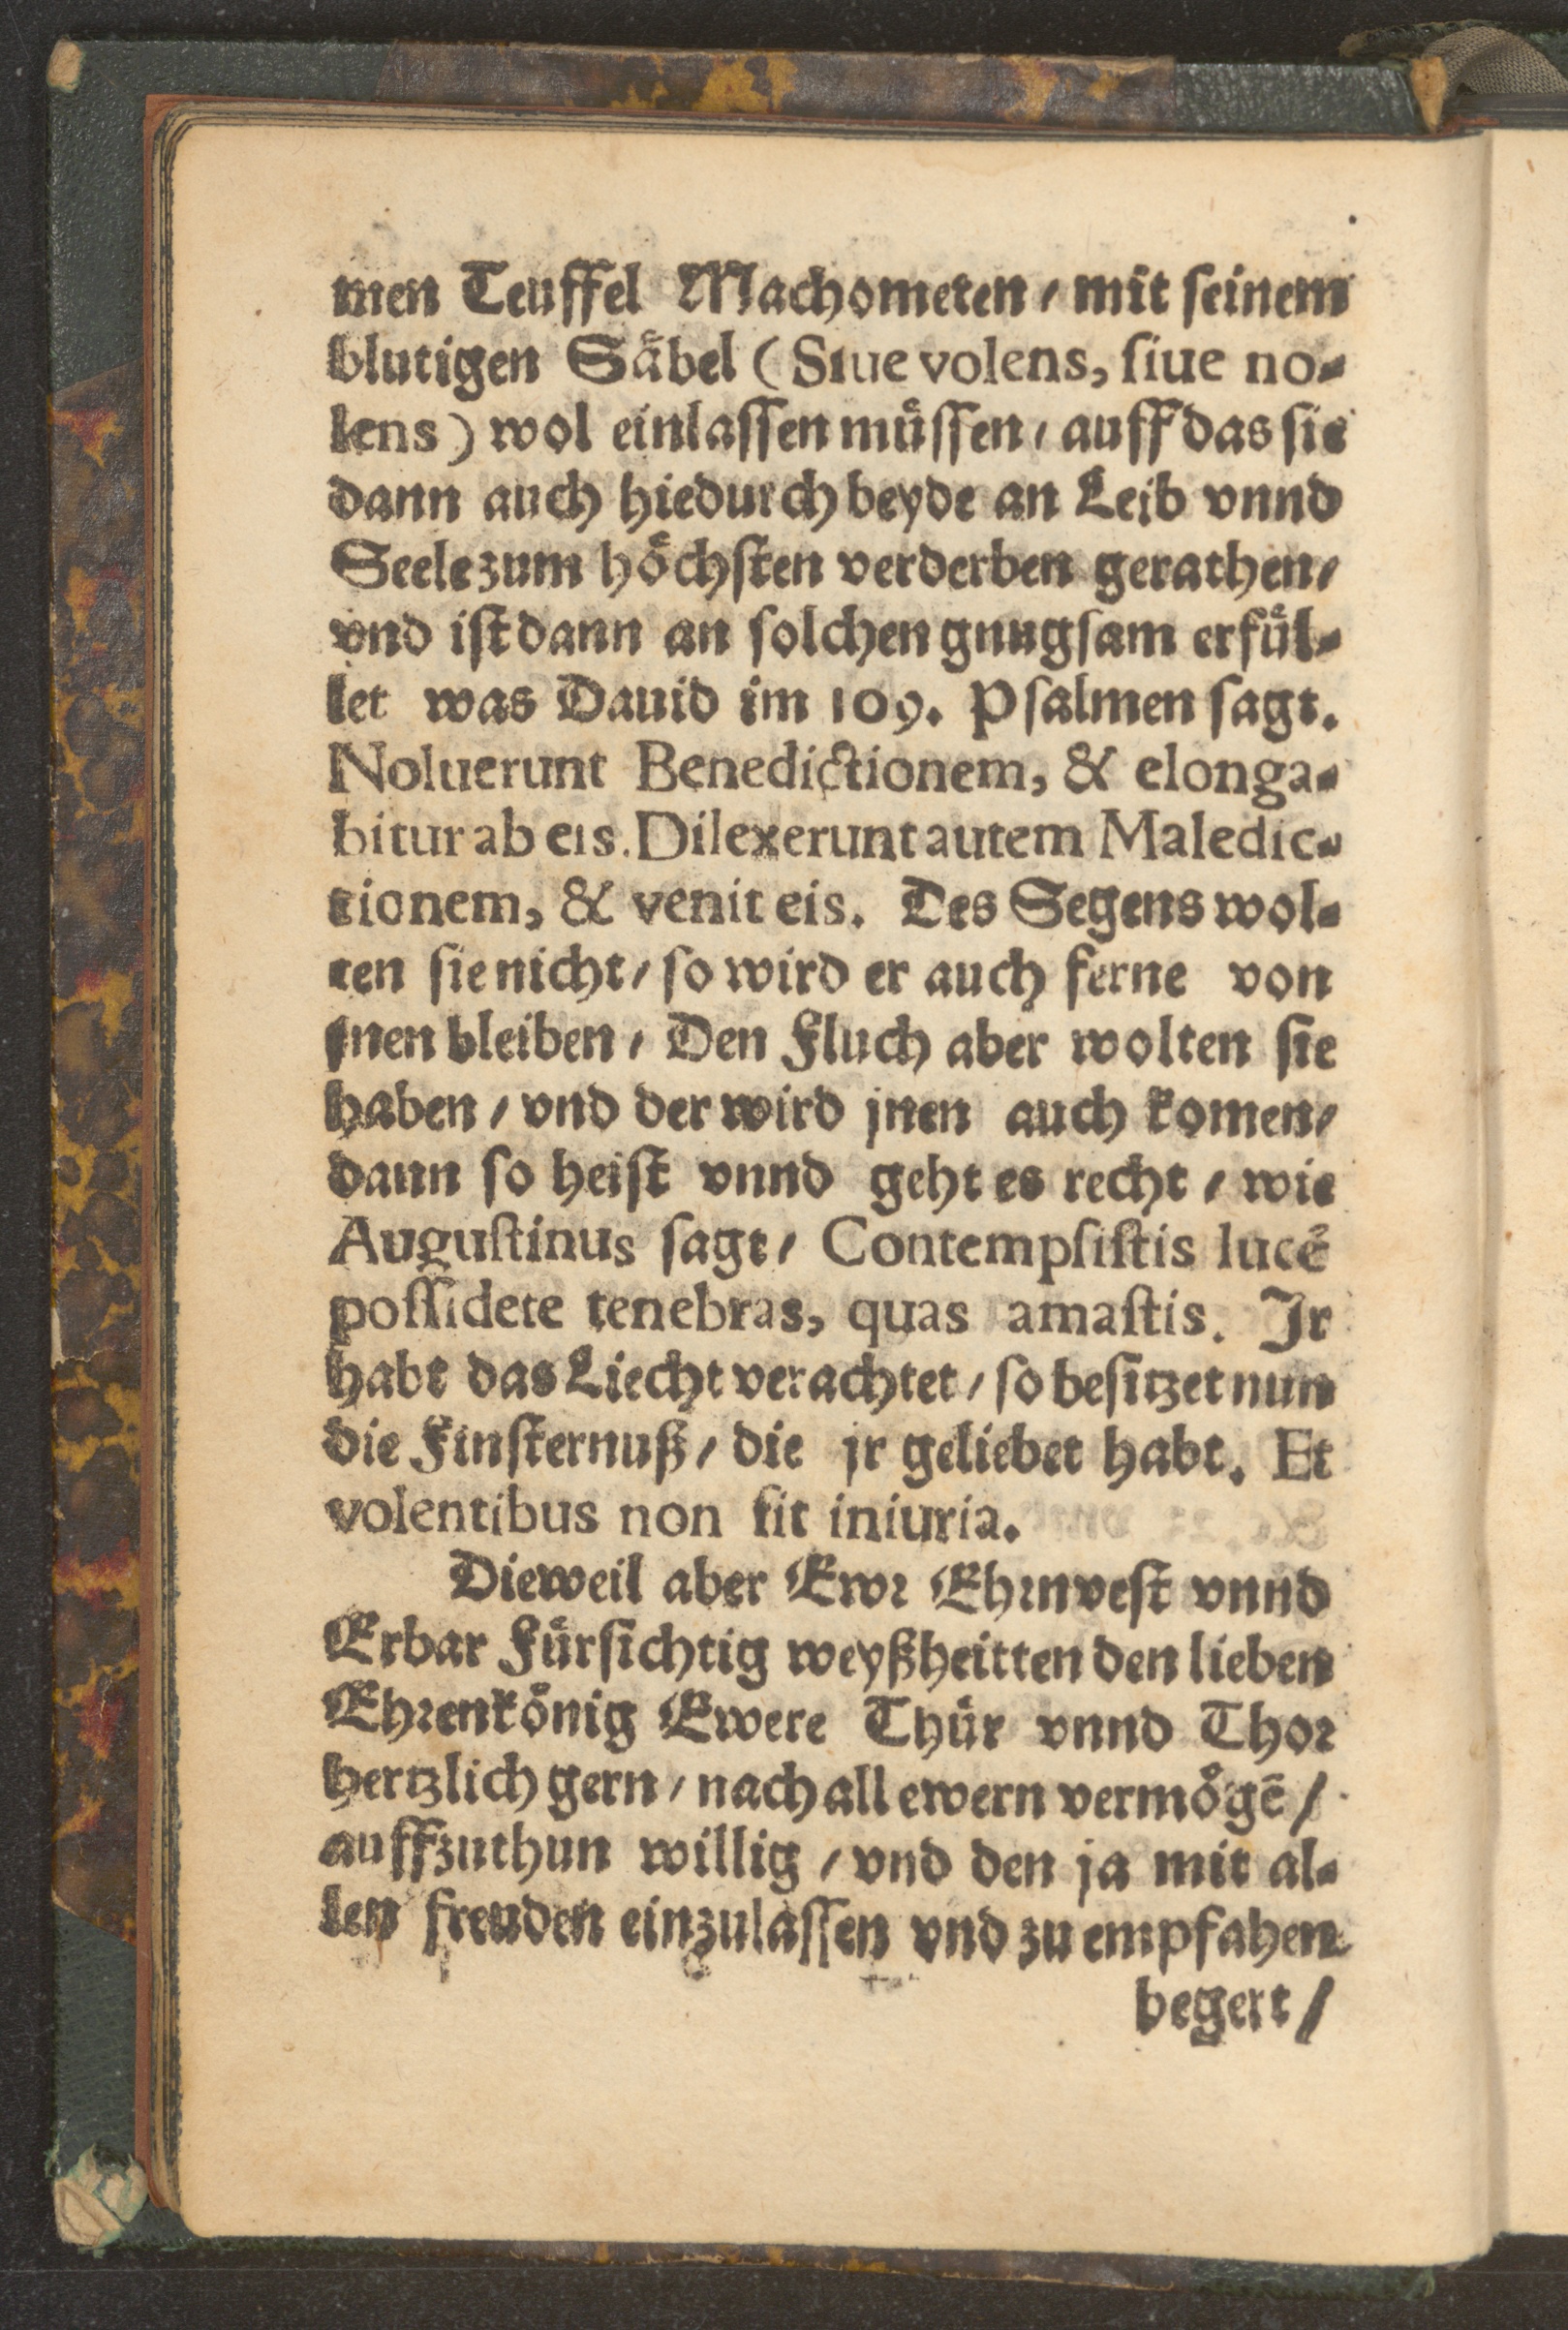 men Teuffel Machometen / mit seinem
blutigen Saͤbel (Siue volens, ſiue no-
lens) wol einlassen muͤssen / auff das sie
dann auch hiedurch beyde an Leib vnnd
Seele zum hoͤchsten verderben gerathen /
vnd ist dann an solchen gnugsam erfuͤl-
let was Dauid im 109. Psalmen sagt.
Noluerunt Benedictionem, & elonga-
bitur ab eis. Dilexerunt autem Maledic-
tionem, & venit eis. Des Segens wol-
ten sie nicht / so wird er auch ferne von
jnen bleiben / Den Fluch aber wolten sie
haben / vnd der wird jnen auch komen /
dann so heist vnnd geht es recht / wie
Auguſtinus sagt / Contempſiſtis lucẽ
poſſidete tenebras, quas amaſtis. Jr
habt das Liecht verachtet / so besitzet nun
die Finsternuß / die jr geliebet habt. Et
volentibus non fit iniuria.
Dieweil aber Ewr Ehrnvest vnnd
Erbar Fuͤrsichtig weyßheitten den lieben
Ehrenkoͤnig Ewere Thuͤr vnnd Thor
hertzlich gern / nach all ewern vermoͤgẽ /
auffzuthun willig / vnd den ja mit al-
len freuden einzulassen vnd zu empfahen
begert /